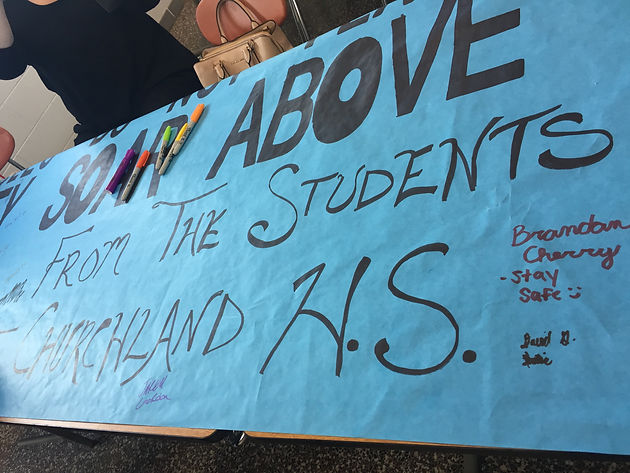 SOAR ABOVE
FROM THE STUDENTS
CHURCHLAND H.S.
Brandan
Cherry
- stay
safe :)
David G.